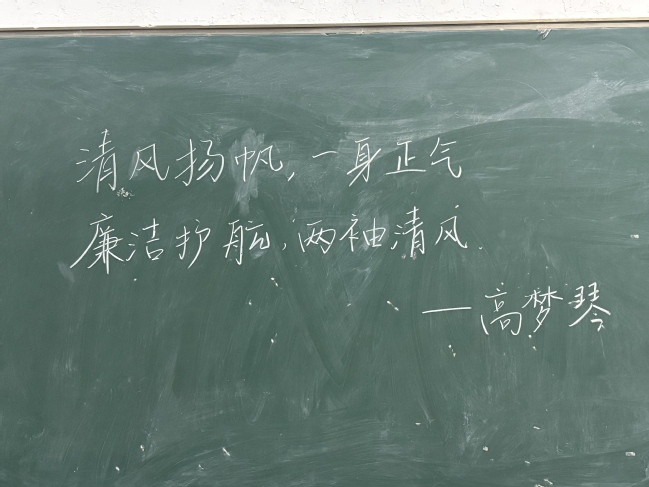 清风扬帆,一身正气
廉洁护航,两袖清风.
—高梦琴